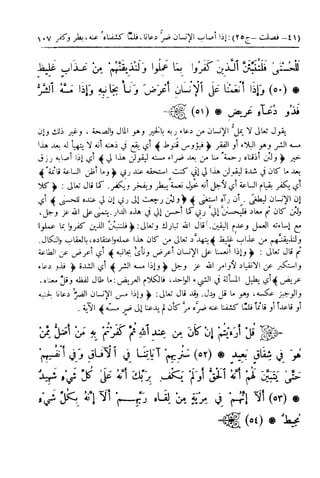 (٤١ – فصلت – ج٢٥) : إذا أصاب الإنسان ضر دعانا، فلما كشفناه عنه، بطر وكفر ١٠٧
لَلْحُسْنَىٰ فَلَنُنَبِّئَنَّ ٱلَّذِينَ كَفَرُوا۟ بِمَا عَمِلُوا۟ وَلَنُذِيقَنَّهُم مِّنْ عَذَابٍ غَلِيظٍ
* (٥٠) وَإِذَآ أَنْعَمْنَا عَلَى ٱلْإِنسَـٰنِ أَعْرَضَ وَنَـَٔا بِجَانِبِهِۦ وَإِذَا مَسَّهُ ٱلشَّرُّ
فَذُو دُعَآءٍ عَرِيضٍ * (٥١)
يقول تعالى لا يملّ الإنسان من دعاء ربه بالخير وهو المال والصحة، وغير ذلك وإن
مسه الشر وهو البلاء أو الفقر ﴿فيؤوس قنوط﴾ أي يقع في ذهنه أنه لا يتهيأ له بعد هذا
خير ﴿ولئن أذقناه رحمة منا من بعد ضراء مسته ليقولن هذا لي﴾ أي إذا أصابه رزق
بعد ما كان في شدة ليقولن هذا لي إني كنت أستحقه عند ربي ﴿وما أظن الساعة قائمة﴾
أي يكفر بقيام الساعة أي لأجل أنه خول نعمة يبطر ويفخر ويكفر. كما قال تعالى : ﴿كلا
إن الإنسان ليطغى أن رآه استغنى﴾ ﴿ولئن رجعت إلى ربي إن لي عنده للحسنى﴾ أي
ولئن كان ثم معاد فليحسنن إلي ربي كما أحسن إلي في هذه الدار. يتمنى على الله عز وجل،
مع إساءته العمل وعدم اليقين. قال الله تبارك وتعالى: ﴿فلننبئن الذين كفروا بما عملوا
ولنذيقنهم من عذاب غليظ﴾ يتهدد تعالى من كان هذا عمله واعتقاده، بالعقاب والنكال.
ثم قال تعالى : ﴿وإذا أنعمنا على الإنسان أعرض ونأى بجانبه﴾ أي أعرض عن الطاعة
واستكبر عن الانقياد لأوامر الله عز وجل ﴿وإذا مسه الشر﴾ أي الشدة ﴿فذو دعاء
عريض﴾ أي يطيل المسألة في الشيء الواحد، فالكلام العريض: ما طال لفظه وقل معناه.
والوجيز عكسه، وهو ما قل ودل. وقد قال تعالى: ﴿وإذا مس الإنسان الضر دعانا لجنبه
أو قاعداً أو قائماً فلما كشفنا عنه ضره مر كأن لم يدعنا إلى ضر مسه﴾ الآية.
قُلْ أَرَءَيْتُمْ إِن كَانَ مِنْ عِندِ ٱللَّهِ ثُمَّ كَفَرْتُم بِهِۦ مَنْ أَضَلُّ مِمَّنْ
هُوَ فِى شِقَاقٍۭ بَعِيدٍ * (٥٢) سَنُرِيهِمْ ءَايَـٰتِنَا فِى ٱلْـَٔافَاقِ وَفِىٓ أَنفُسِهِمْ
حَتَّىٰ يَتَبَيَّنَ لَهُمْ أَنَّهُ ٱلْحَقُّ أَوَلَمْ يَكْفِ بِرَبِّكَ أَنَّهُۥ عَلَىٰ كُلِّ شَىْءٍ شَهِيدٌ
* (٥٣) أَلَآ إِنَّهُمْ فِى مِرْيَةٍ مِّن لِّقَآءِ رَبِّهِمْ أَلَآ إِنَّهُۥ بِكُلِّ شَىْءٍ
مُّحِيطٌۢ * (٥٤)